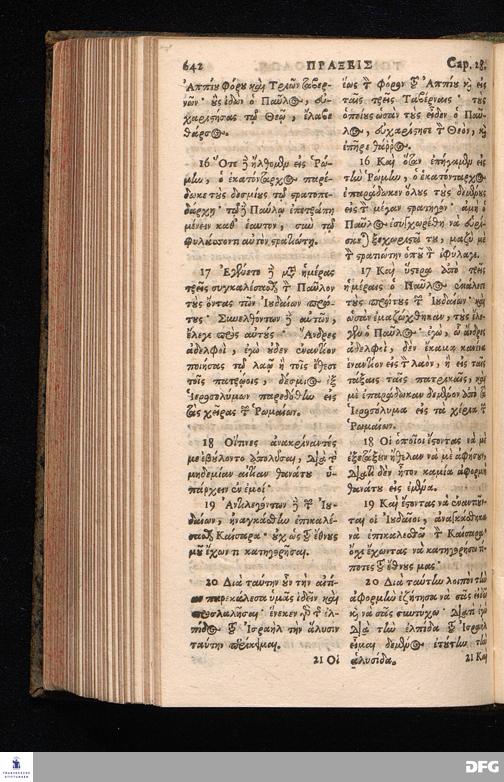 642 ΠΡΑΞΕΙΣ Cap. 28.
Ἀππίου Φόρου καὶ Τριῶν Ταβερ-
νῶν· οὓς ἰδὼν ὁ Παῦλος, εὐ-
χαριστήσας τῷ Θεῷ, ἔλαβε
θάρσος.
16 Ὅτε δὲ ἤλθομεν εἰς Ῥώ-
μην, ὁ ἑκατόνταρχος παρέ-
δωκε τοὺς δεσμίους τῷ στρατοπε-
δάρχῃ· τῷ δὲ Παύλῳ ἐπετράπη
μένειν καθ' ἑαυτὸν, σὺν τῷ
φυλάσσοντι αὐτὸν στρατιώτῃ.
17 Ἐγένετο δὲ μετὰ ἡμέρας
τρεῖς συγκαλέσασθαι τὸν Παῦλον
τοὺς ὄντας τῶν Ἰουδαίων πρώ-
τους· Συνελθόντων δὲ αὐτῶν,
ἔλεγε πρὸς αὐτούς· Ἄνδρες
ἀδελφοὶ, ἐγὼ οὐδὲν ἐναντίον
ποιήσας τῷ λαῷ ἢ τοῖς ἔθεσι
τοῖς πατρῴοις, δέσμιος ἐξ
Ἱεροσολύμων παρεδόθην εἰς
τὰς χεῖρας τῶν Ῥωμαίων.
18 Οἵτινες ἀνακρίναντές
με ἐβούλοντο ἀπολῦσαι, διὰ τὸ
μηδεμίαν αἰτίαν θανάτου ὑ-
πάρχειν ἐν ἐμοί.
19 Ἀντιλεγόντων δὲ τῶν Ἰου-
δαίων, ἠναγκάσθην ἐπικαλέ-
σασθαι Καίσαρα· οὐχ ὡς τοῦ ἔθνους
μου ἔχων τι κατηγορῆσαι.
20 Διὰ ταύτην οὖν τὴν αἰτί-
αν παρεκάλεσα ὑμᾶς ἰδεῖν καὶ
προσλαλῆσαι· ἕνεκεν γὰρ τῆς ἐλ-
πίδος τοῦ Ἰσραὴλ τὴν ἅλυσιν
ταύτην περίκειμαι.
21 Οἱ
ἕως τὸν Φόρον τοῦ Ἀππίου καὶ εἰς
ταῖς τρεῖς Ταβέρναις· τοὺς
ὁποίους ὡσὰν τοὺς εἶδεν ὁ Παῦ-
λος, εὐχαρίστησε τὸν Θεὸν, καὶ
ἐπῆρε θάῤῥος.
16 Καὶ ὅταν ἐπήγαμεν εἰς
τὴν Ῥώμην, ὁ ἑκατόνταρχος
ἐπαράδωκεν ὅλους τοὺς δεμένους
εἰς τὸν μέγαν στρατηγόν· ἀμὴ ὁ
Παῦλος ἐσυγχωρέθη νὰ εὑρί-
σκεται ξεχωριστά του, μαζὺ μὲ
τὸν στρατιώτην ὁποῦ τὸν ἐφύλαγε.
17 Καὶ ὕστερα ἀπὸ τρεῖς
ἡμέραις ὁ Παῦλος ἐκάλεσε
τοὺς πρώτους τῶν Ἰουδαίων· καὶ
ὡσὰν ἐμαζώχθηκαν, τοὺς ἔλε-
γεν ὁ Παῦλος· ἐγὼ, ὦ ἄνδρες
ἀδελφοὶ, δὲν ἔκαμα κανένα
ἐναντίον εἰς τὸν λαὸν, ἢ εἰς ταῖς
τάξαις ταῖς πατρικαῖς, καὶ
μὲ ἐπαράδωκαν δεμένον ἀπὸ τὰ
Ἱεροσόλυμα εἰς τὰ χέρια τῶν
Ῥωμαίων.
18 Οἱ ὁποῖοι ἔσοντας νὰ μὲ
ἐξετάξουν ἤθελαν νὰ μὲ ἀφήσουν,
διατὶ δὲν ἦτον καμία ἀφορμὴ
θανάτου εἰς ἐμένα.
19 Καὶ ἔσοντας νὰ ἐναντιοῦν-
ται οἱ Ἰουδαῖοι, ἀναγκάσθηκα
νὰ ἐπικαλεσθῶ τὸν Καίσαρα·
ὄχι ἔχωντας νὰ κατηγορήσω τί-
ποτες τοῦ ἔθνους μας.
20 Διὰ ταύτην λοιπὸν τὴν
ἀφορμὴν ἐζήτησα νὰ σᾶς εἰδῶ
καὶ νὰ σᾶς συντύχω· διατὶ ἐγὼ
διὰ τὴν ἐλπίδα τοῦ Ἰσραὴλ
εἶμαι δεμένος ἐτούτην τὴν
ἁλυσίδα.
21 Καὶ
DFG